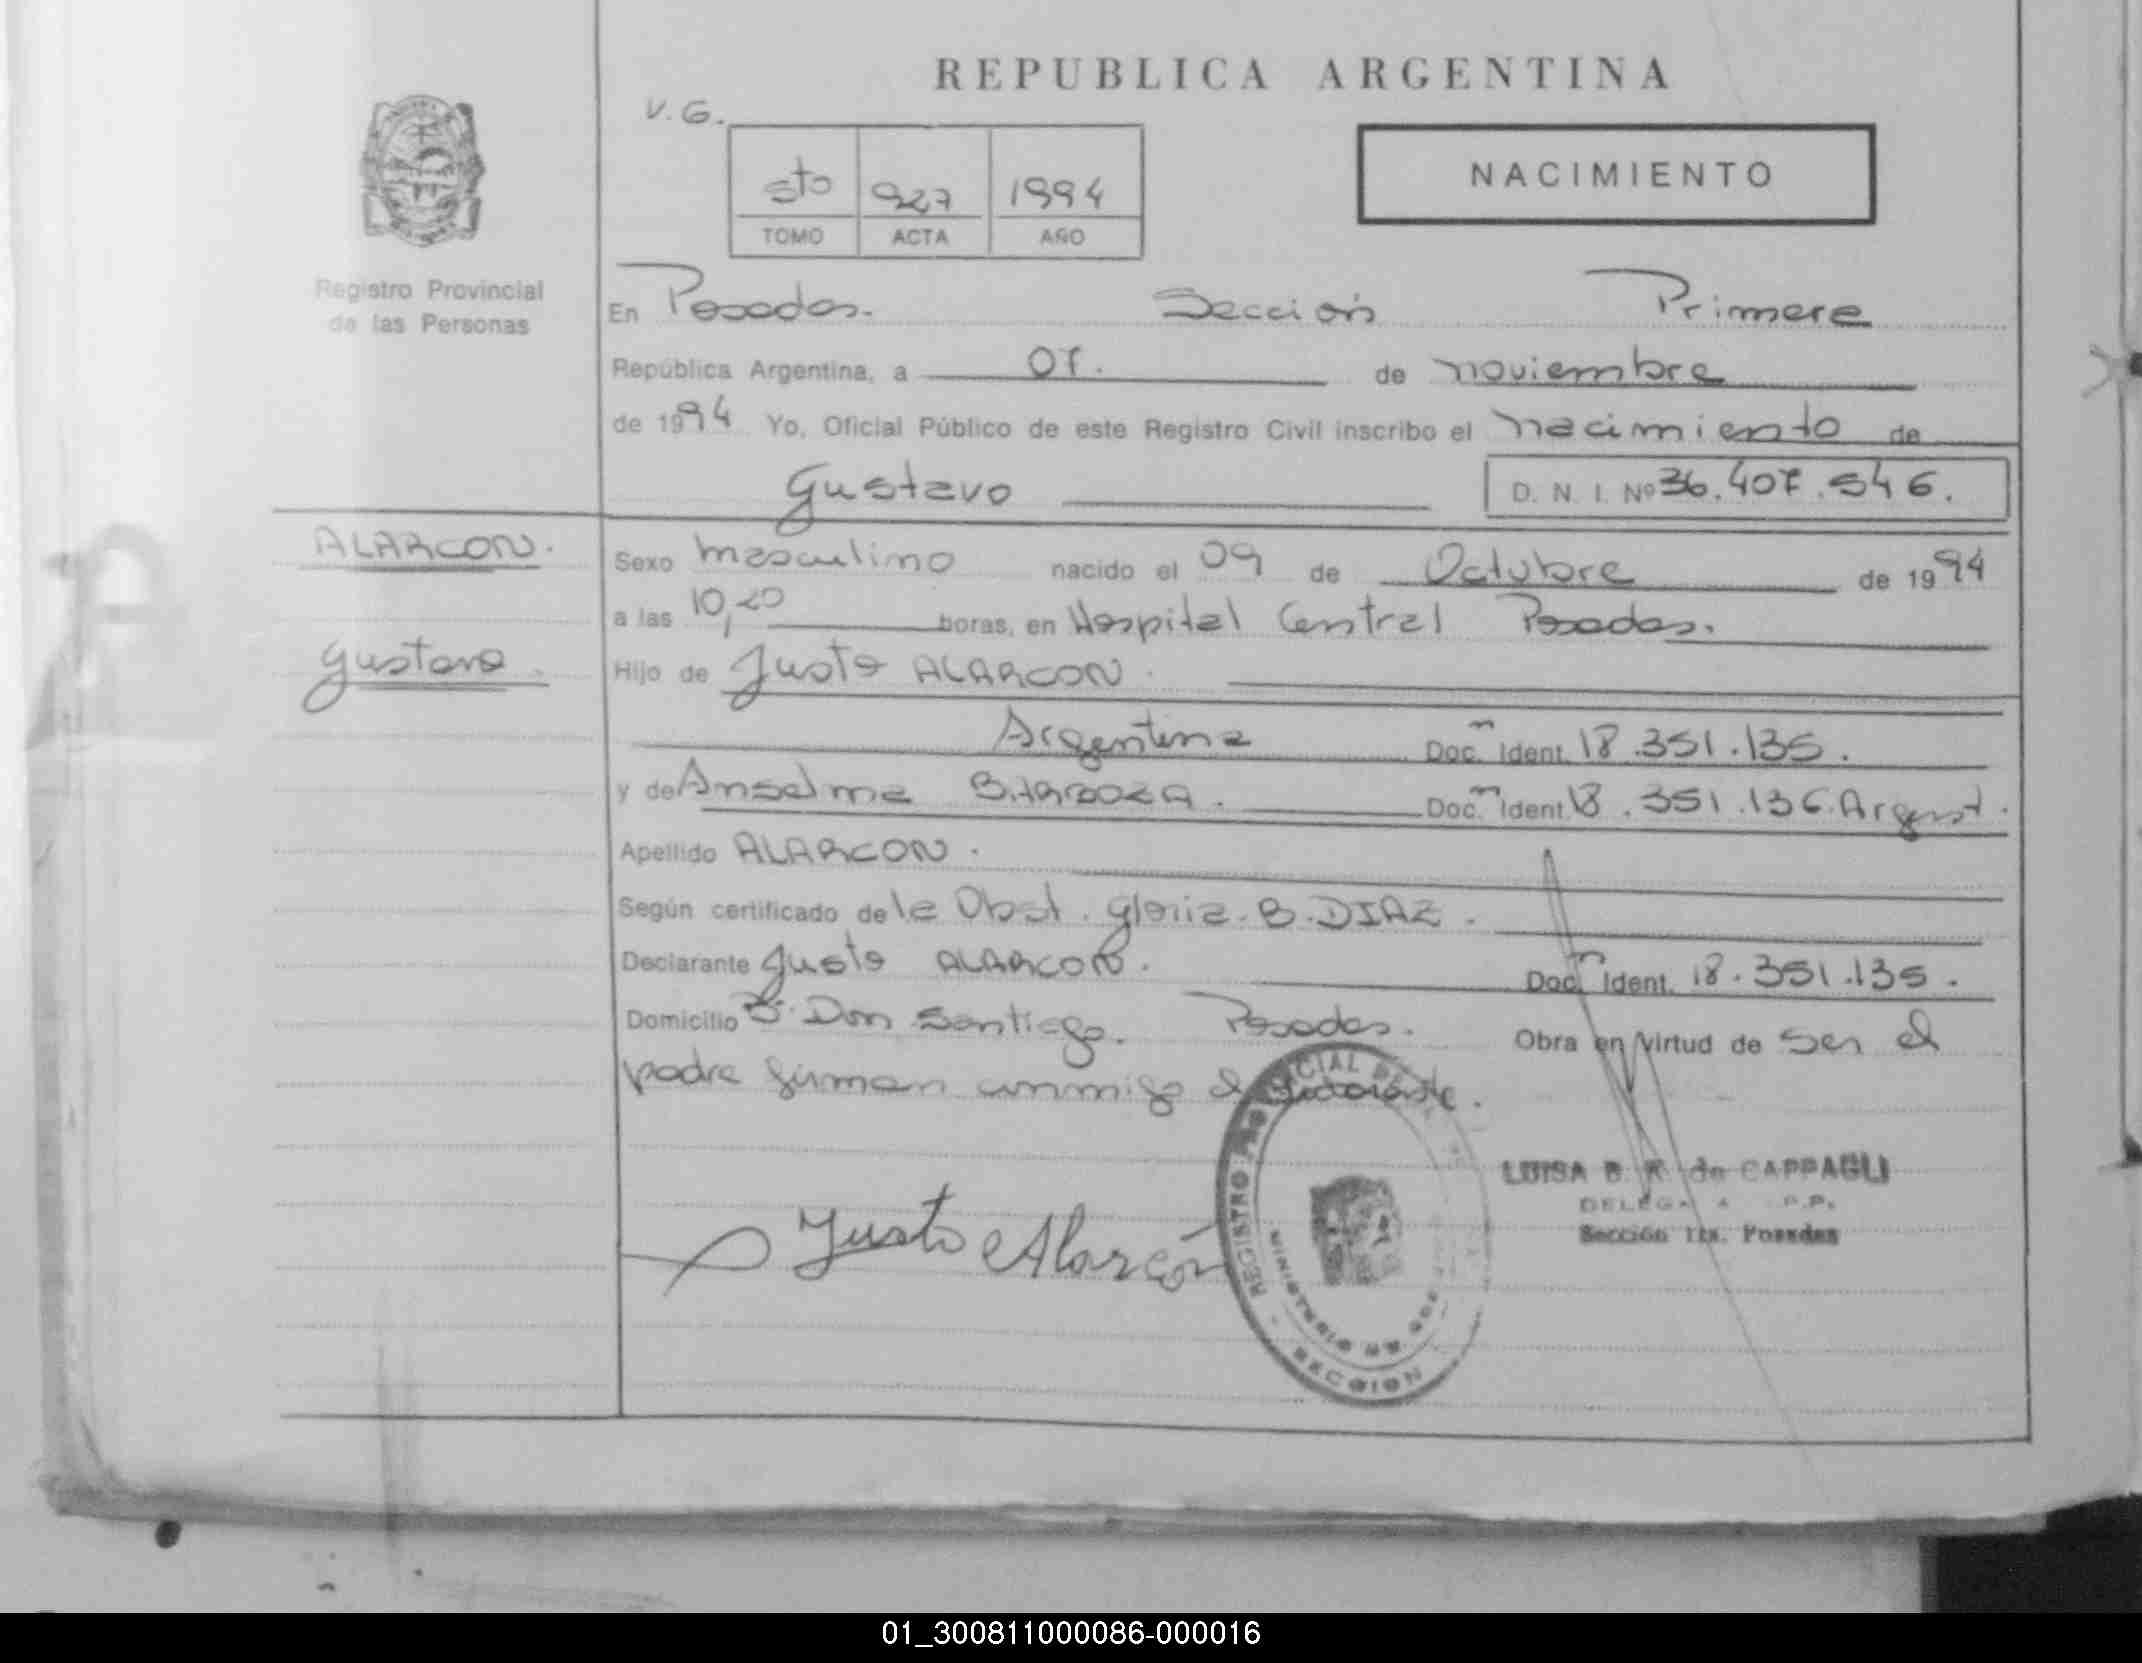 REPUBLICA ARGENTINA
V. G.
5to 927 1994
TOMO ACTA AÑO
NACIMIENTO
Registro Provincial
de las Personas
En Posadas. Sección Primera
República Argentina, a 07. de noviembre
de 1994 Yo, Oficial Público de este Registro Civil inscribo el nacimiento de
Gustavo D. N. I. Nº 36.407.546.
ALARCON.
Gustavo
Sexo masculino nacido el 09 de Octubre de 1994
a las 10,20 horas, en Hospital Central Posadas.
Hijo de Justo ALARCON.
Argentina Doc. Ident. 18.351.135.
y de Anselma BARBOZA. Doc. Ident. 18.351.136. Argent.
Apellido ALARCON.
Según certificado de la Obst. Gloria B. DIAZ.
Declarante Justo ALARCON. Doc. Ident. 18.351.135.
Domicilio Don Santiago. Posadas. Obra en virtud de ser el
padre firman conmigo el declarante.
Justo Alarcón
REGISTRO PROVINCIAL DE
MINISTERIO DE GOB
SECCION
LUISA B. R. de CAPPAGLI
DELEGA R.P.
Sección 1ra. Posadas
01_300811000086-000016